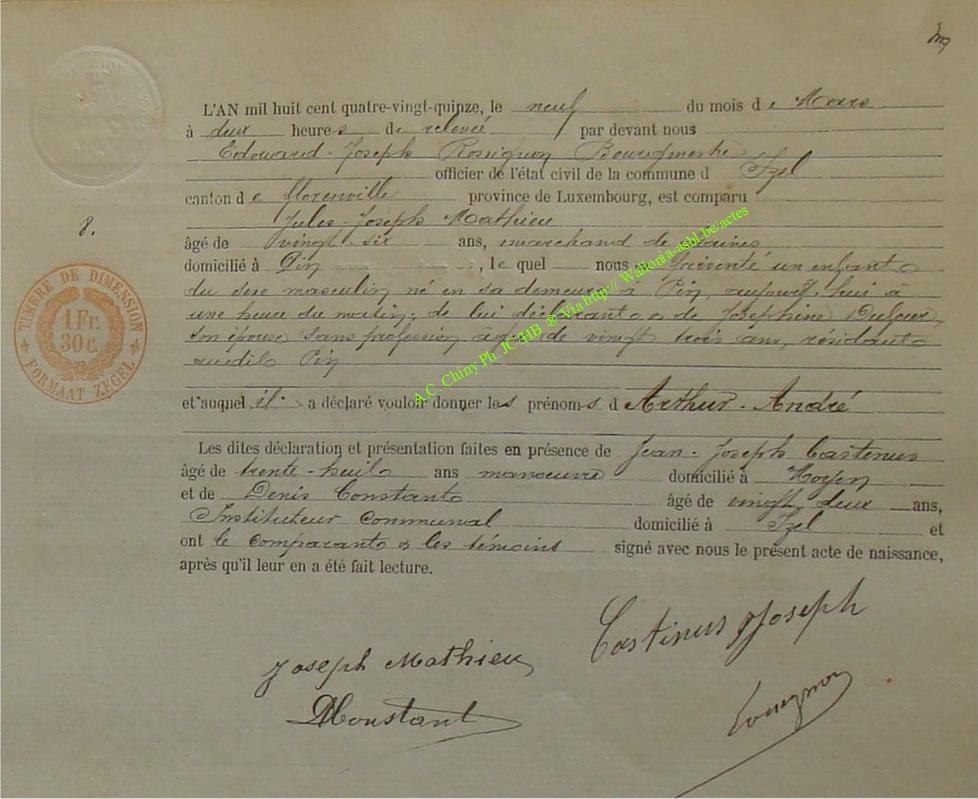 L'AN mil huit cent quatre-vingt-quinze, le neuf du mois de Mars
à deux heures de relevée par devant nous
Edouard-Joseph Rossignon Bourgmestre
officier de l'état civil de la commune d Izel
canton de florenville province de Luxembourg, est comparu
Jules-Joseph Mathieu
8.
âgé de vingt-six ans, marchand de farines
domicilié à Pin, lequel nous a présenté un enfant
du sexe masculin né en sa demeure à Pin, aujourd'hui à
une heure du matin; de lui déclarant & de Joséphine
son épouse sans profession, âgée de vingt trois ans, résidant
audit Pin
TIMBRE DE DIMENSION
1 Fr.
30 c.
FORMAAT ZEGEL
et auquel il a déclaré vouloir donner les prénoms d Arthur-André
Les dites déclaration et présentation faites en présence de Jean-Joseph Castenus
âgé de trente-huit ans manœuvre domicilié à Moyen
et de Denis Constant âgé de vingt-deux ans,
Instituteur communal domicilié à Izel et
ont le comparant & les témoins signé avec nous le présent acte de naissance,
après qu'il leur en a été fait lecture.
Castinus Joseph
Joseph Mathieu
DConstant
Rossignon
A.C. Chiny Ph. JC/HB ® Via http://Wallonia-asbl.be/actes